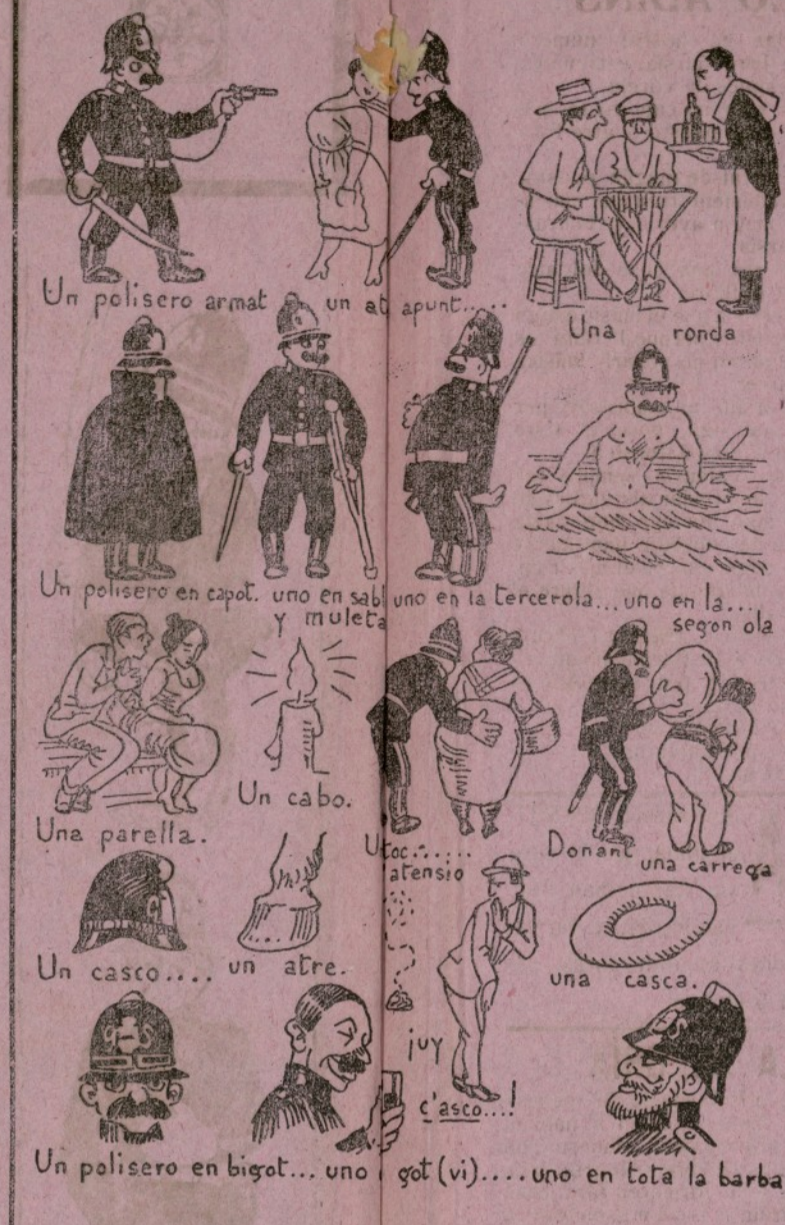 Un polisero armat un at apunt.....
Una ronda
Un polisero en capot. uno en sabl uno en la tercerola... uno en la...
y muleta segon ola
Una parella.
Un cabo.
toc.......
atensio
Donant
una carrega
Un casco.... un atre.
una casca.
¡uy
c'asco...!
Un polisero en bigot... uno got (vi).... uno en tota la barba